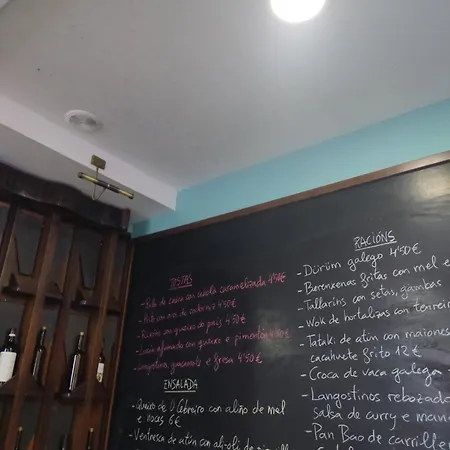 TOSTAS
- de vaca con cebola caramelizada 4'50€
- con de 4'50€
- con queixo do país 4'50€
- afumado con queixo e pementos
- Langostinos, guacamole e fresa 4'50€
ENSALADA
- Queixo de O Cebreiro con aliño de mel
e noces 6€
- Ventresca de atún con ali-oli de
RACIÓNS
- Dürüm galego 4'50€
- Berenxenas fritas con mel e
- Tallaríns con setas, gambas
- Wok de hortalizas con tenreira
- Tataki de atún con maionesa
cacahuete frito 12€
- Croca de vaca galega
- Langostinos rebozados
salsa de curry e
- Pan Bao de carrillera